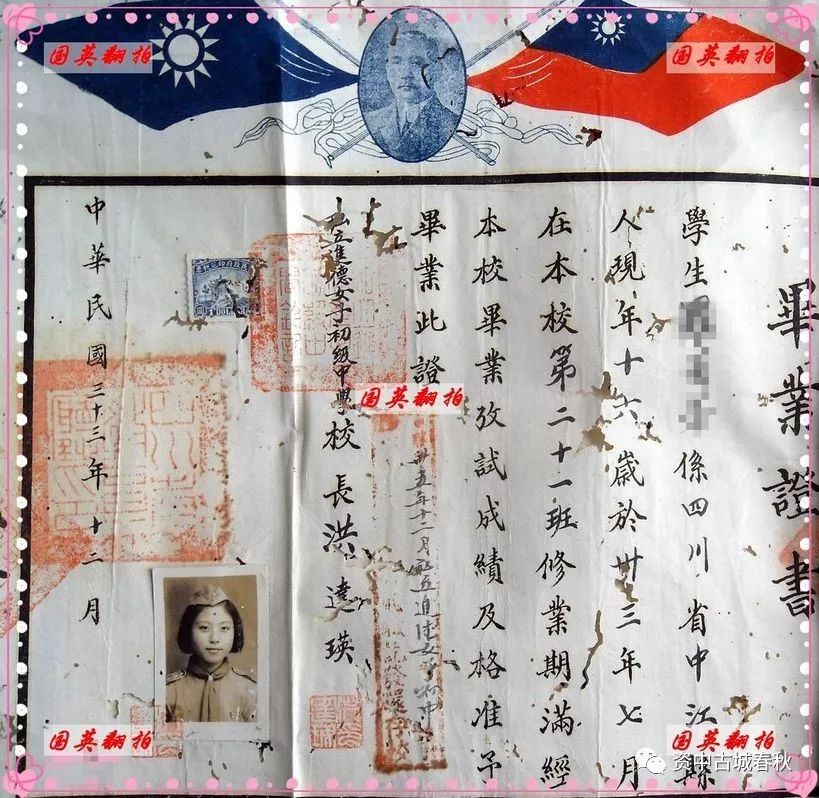 畢業證書
學生
係四川省中江縣
人現年十六歲於卅三年七月
在本校第二十一班修業期滿經
本校畢業攷試成績及格准予
畢業此證
私立進德女子初級中學校長洪達瑛
中華民國三十三年十二月
国英翻拍
国英翻拍
国英翻拍
国英翻拍
国英翻拍
资中古城春秋